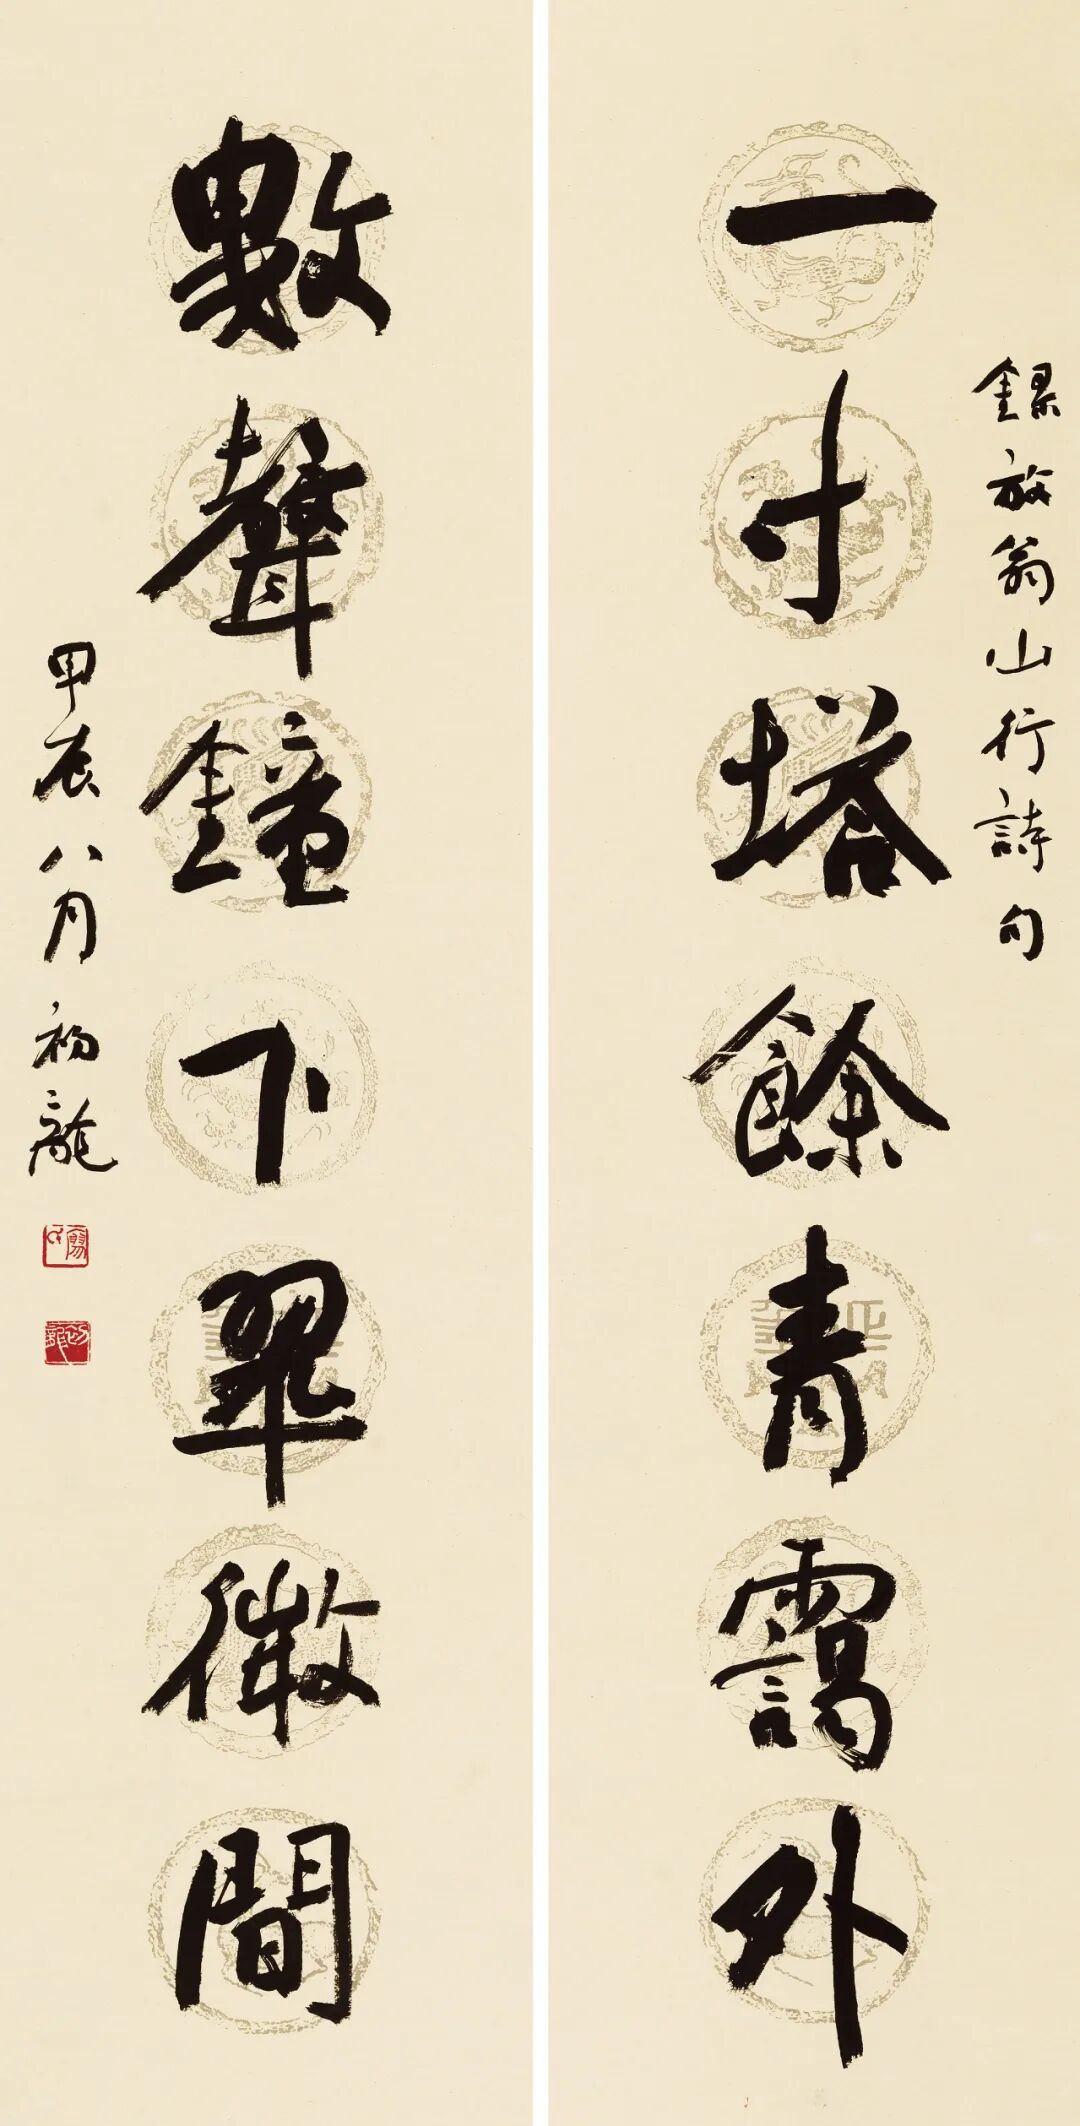 錄放翁山行詩句
一寸塔餘青靄外
數聲鐘下翠微間
甲辰八月初龍
初龍